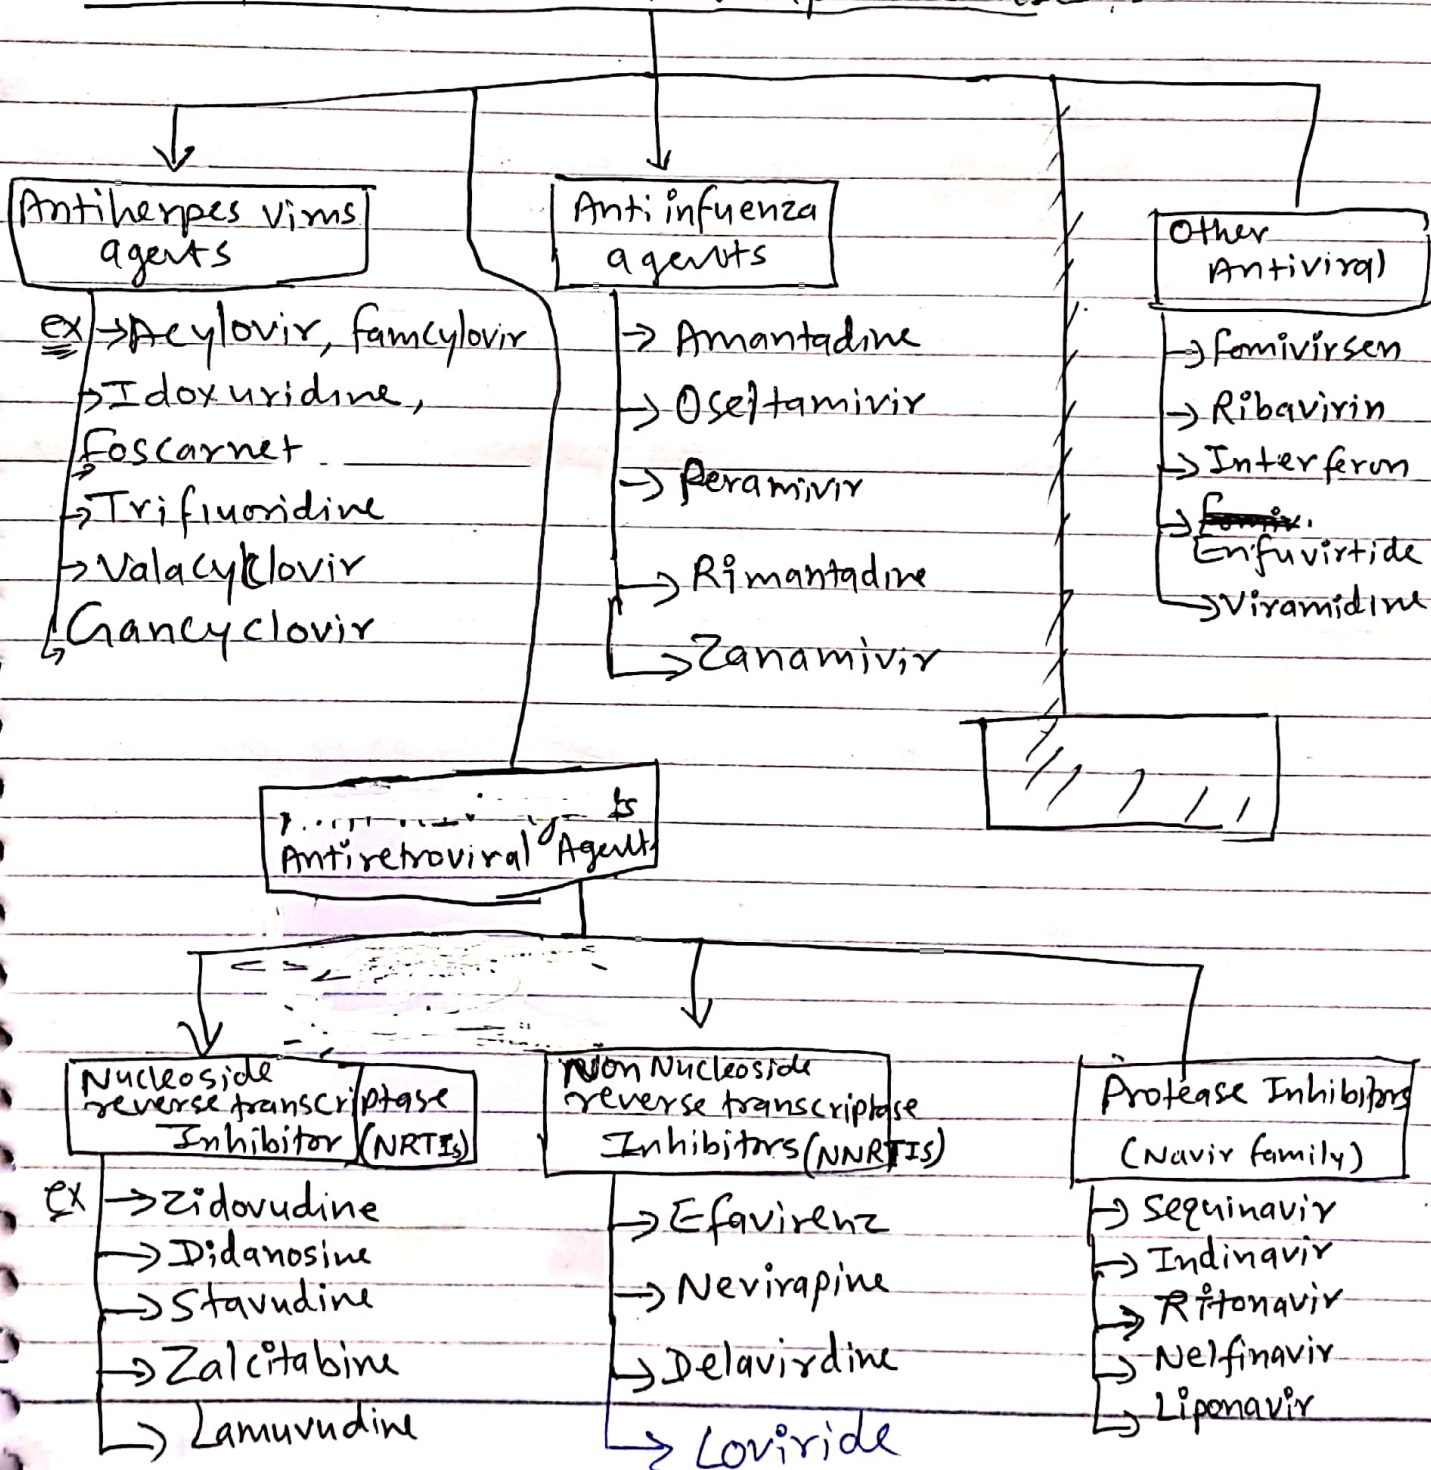 Antiherpes virus
agents
ex → Acylovir, famcylovir
→ Idoxuridine,
foscarnet
→ Trifluoridine
→ Valacyclovir
Gancyclovir
Anti infuenza
agents
→ Amantadine
→ Oseltamivir
→ Peramivir
→ Rimantadine
→ Zanamivir
Other
Antiviral
→ fomivirsen
→ Ribavirin
→ Interferon
→ Enfuvirtide
→ Viramidine
Antiretroviral Agents
Nucleoside
reverse transcriptase
Inhibitor (NRTIs)
ex → Zidovudine
→ Didanosine
→ Stavudine
→ Zalcitabine
→ Lamuvudine
Non Nucleoside
reverse transcriptase
Inhibitors (NNRTIS)
→ Efavirenz
→ Nevirapine
→ Delavirdine
→ Loviride
Protease Inhibitors
(Navir family)
→ Sequinavir
→ Indinavir
→ Ritonavir
→ Nelfinavir
→ Liponavir